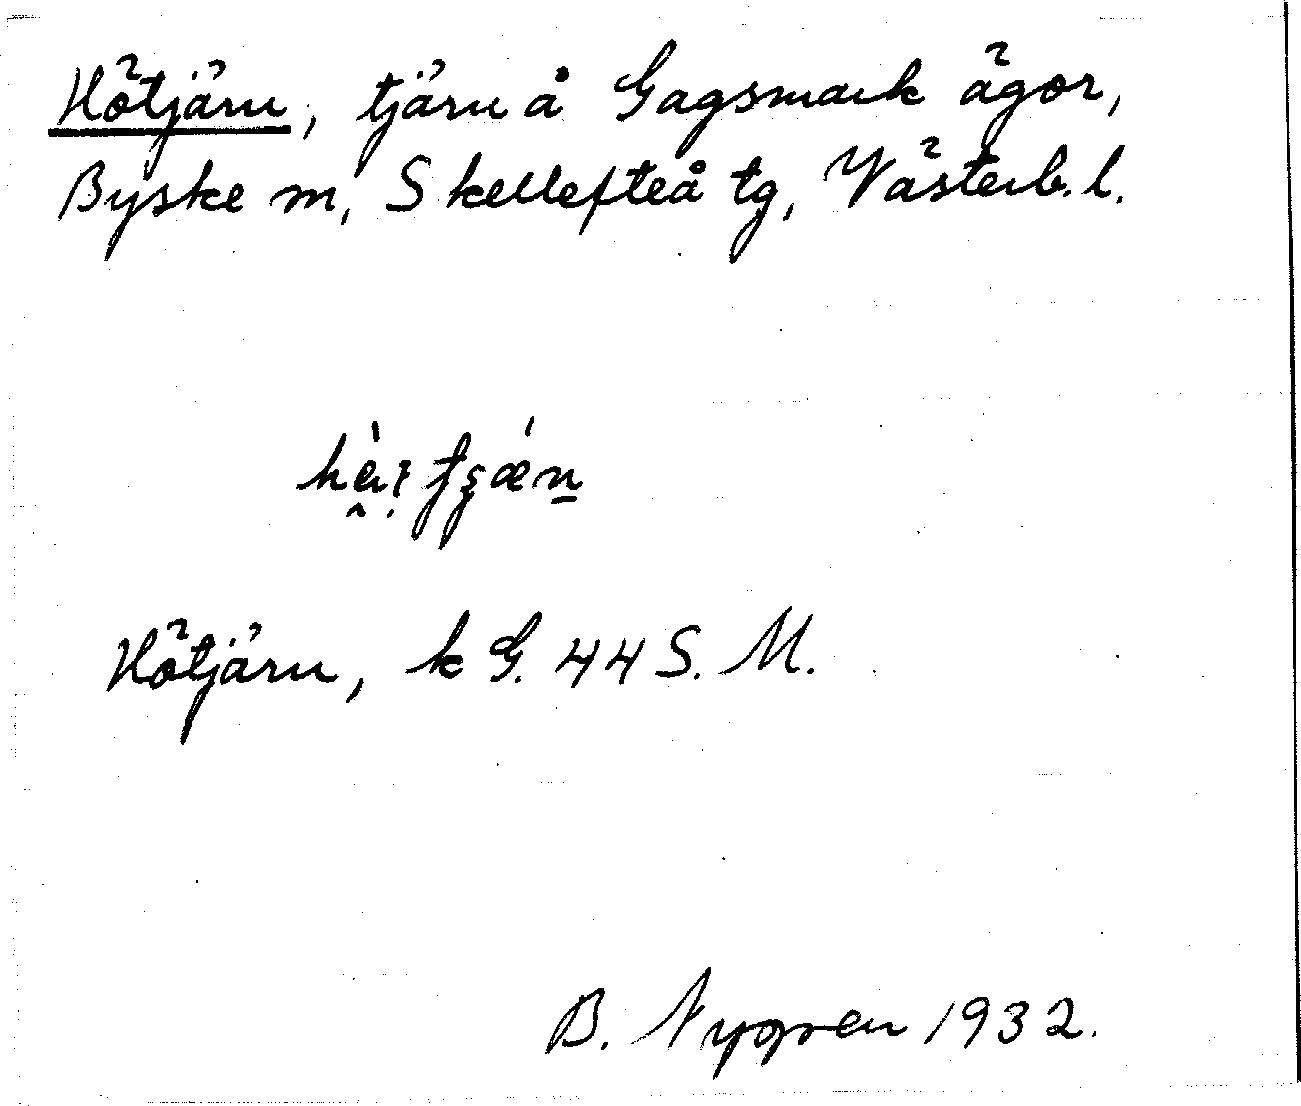 Hötjärn, tjärn å Gagsmark ägor,
Byske sn, Skellefteå tg, Västerb. l.
Hötjärn, k G. 44 S. M.
B. Nygren 1932.